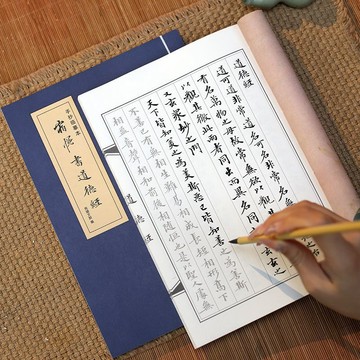 道德經
道可道非常道名可名非常名
有名萬物之母故常無欲以觀
以觀其徼此兩者同出而異名同
玄之
又玄眾妙之門
天下皆知美之為美斯惡已皆知善之為善斯
不善已有無相生難易相成長短相形高下
相盈音聲相和前後相隨是以聖人處無
道德經
手抄描摹本
書道德經